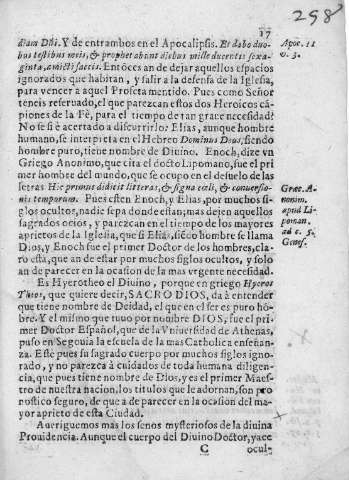 298
17
diam Dei. Y de entrambos en el Apocalipsis. Et dabo duo-
bus testibus meis, & prophetabunt diebus mille ducentis sexa-
ginta, amicti saccis. Entonces an de dejar aquellos espacios
ignorados que habitan, y salir a la defensa de la Iglesia,
para vencer a aquel Profeta mentido. Pues como Señor
teneis reseruado, el que parezcan estos dos Heroicos cã-
piones de la Fè, para el tiempo de tan graue necesidad?
No se si è acertado a discurrirlo: Elias, aunque hombre
humano, se interpreta en el Hebreo Dominus Deus, siendo
hombre puro, tiene nombre de Diuino. Enoch, dize vn
Griego Anonimo, que cita el docto Lipomano, fue el pri
mer hombre del mundo, que se ocupo en el desuelo de las
letras Hic primus didicit litteras, & signa cœli, & conuersio-
nis temporum. Pues esten Enoch, y Elias, por muchos si-
glos ocultos, nadie sepa donde estan; mas dejen aquellos
sagrados ocios, y parezcan en el tiempo de los mayores
aprietos de la Iglesia, que si Elias, siẽdo hombre se llama
Dios, y Enoch fue el primer Doctor de los hombres, cla-
ro està, que an de estar por muchos siglos ocultos, y solo
an de parecer en la ocasion de la mas vrgente necesidad.
Es Hyerotheo el Diuino, porque en griego Hyeros
Theos, que quiere decir, SACRO DIOS, da à entender
que tiene nombre de Deidad, el que en el ser es puro hõ-
bre. Y el mismo que tuuo por nombre DIOS, fue el pri-
mer Doctor Español, que de la Vniuersidad de Athenas,
puso en Segouia la escuela de la mas Catholica enseñan-
za. Estè pues su sagrado cuerpo por muchos siglos igno-
rado, y no parezca à cuidados de toda humana diligen-
cia, que pues tiene nombre de Dios, y es el primer Maes-
tro de nuestra nacion, los titulos que le adornan, son pro
nostico seguro, de que a de parecer en la ocasion del ma-
yor aprieto de esta Ciudad.
Aueriguemos mas los senos mysteriosos de la diuina
Prouidencia. Aunque el cuerpo del Diuino Doctor, yace
C
ocul-
Apoc. 11
v. 3.
Græc. A-
nonim.
apud Li-
poman.
ad c. 5.
Genes.